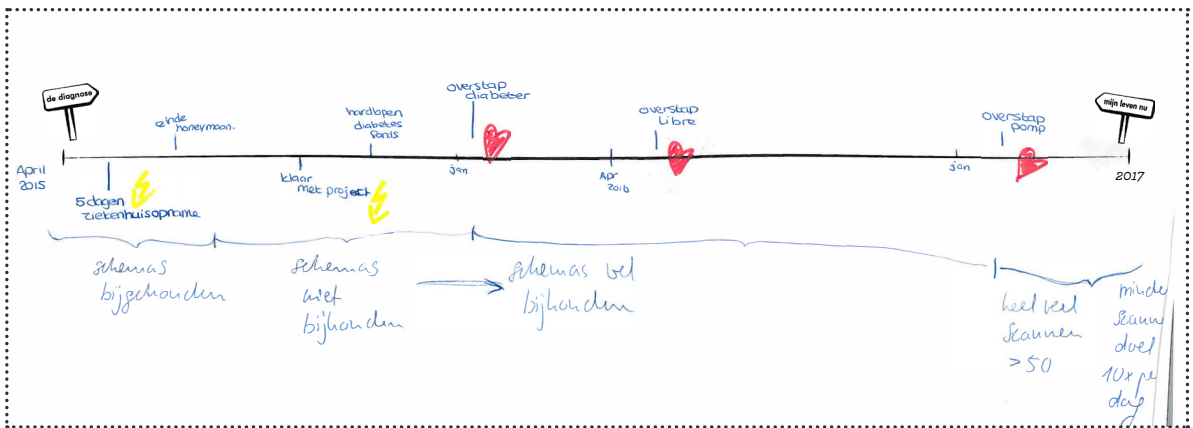 de diagnose
April
2015
5 dagen
ziekenhuisopname
einde
honeymoon.
klaar
met project
hardlopen
diabetes
fonds
overstap
diabeter
jan
Apr
2016
overstap
Libre
jan
overstap
pomp
mijn leven nu
2017
schemas
bijgehouden
schemas
niet
bijhouden
schemas wel
bijhouden
heel veel
scannen
>50
minde
scann
doel
10x pe
dag